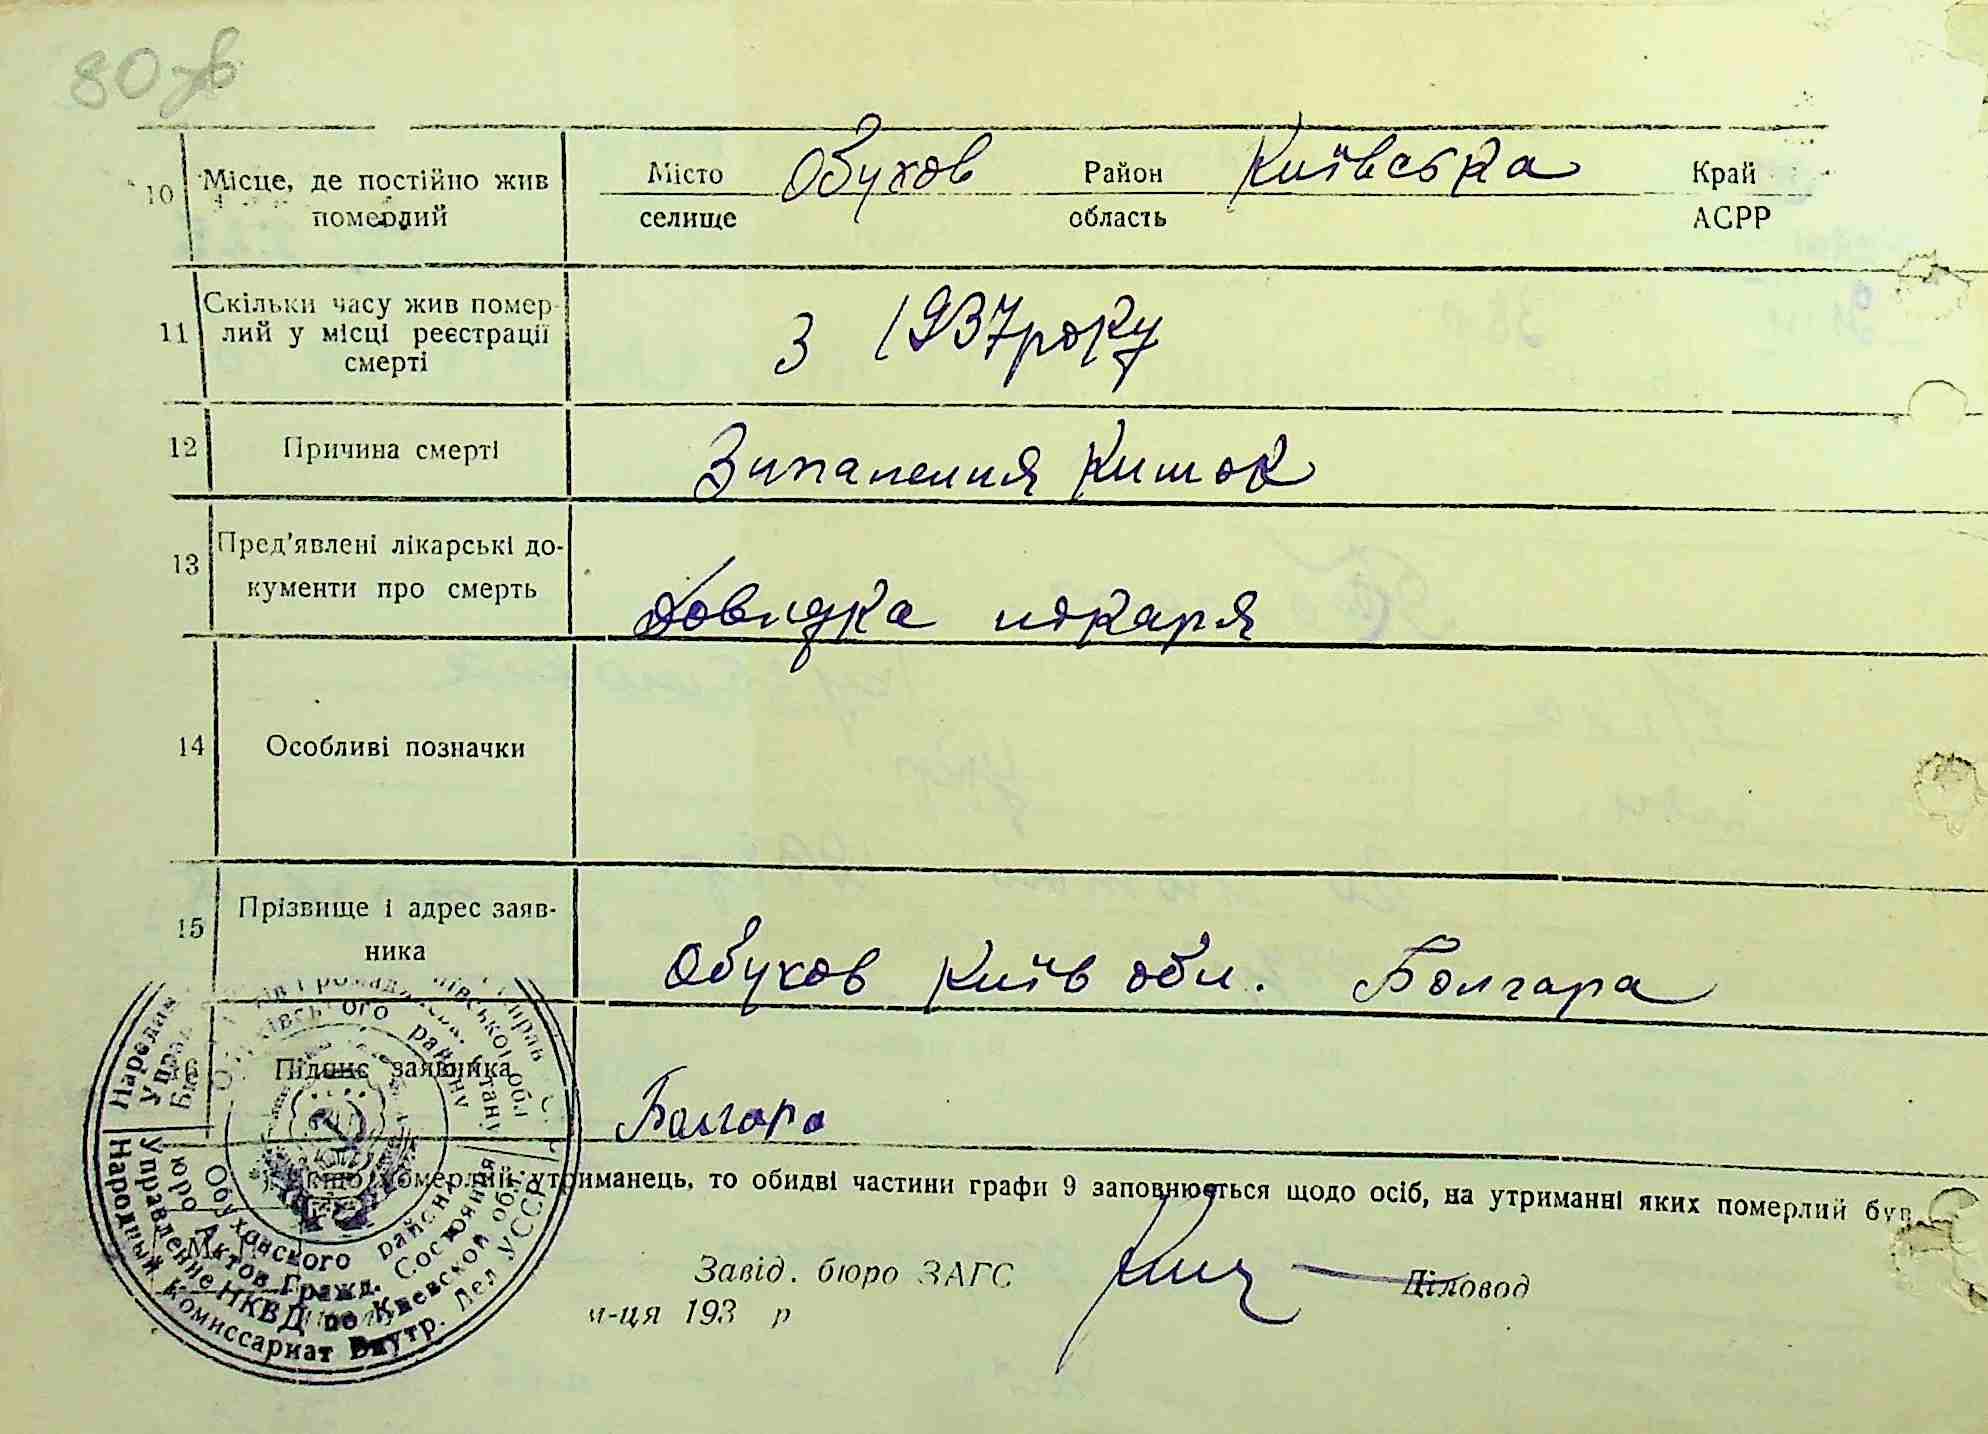 80 зв
10 Місце, де постійно жив померлий Місто селище Обухов Район область Київська Край АСРР
11 Скільки часу жив померлий у місці реєстрації смерті З 1937 року
12 Причина смерті Зипалення Кишок
13 Пред'явлені лікарські документи про смерть Довидка лікаря
14 Особливі позначки
15 Прізвище і адрес заявника Обухов Київ обл. Болгара
16 Підпис заявника Болгара
Якщо померлий утриманець, то обидві частини графи 9 заповнюється щодо осіб, на утриманні яких померлий був
Завід. бюро ЗАГС Діловод
м-ця 193 р
Народный Комиссариат Внутр. Дел УССР
Управление НКВД по Киевской обл.
Бюро Актов Гражд. Состояния
Обуховского района